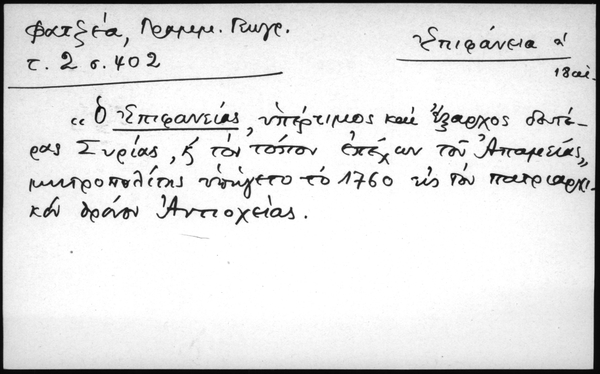 Φατζέα, Γραμμ. Γεωγρ.
τ. 2 σ. 402
Ἐπιφάνεια ἡ
18 αἰ.
"Ὁ Ἐπιφανείας, ὑπέρτιμος καὶ ἔξαρχος δευτέ-
ρας Συρίας, ϗ τὸν τόπον ἐπέχων τοῦ Ἀπαμείας,,
μητροπολίτης ὑπήγετο τὸ 1760 εἰς τὸν πατριαρχι-
κὸν θρόνον Ἀντιοχείας.